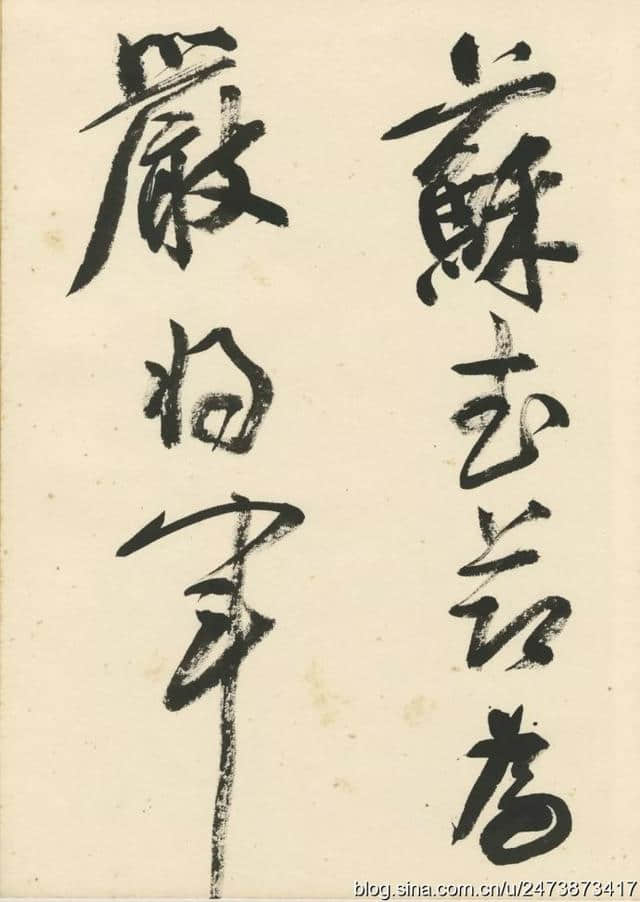 蘇武節為
嚴將軍
blog.sina.com.cn/u/2473873417